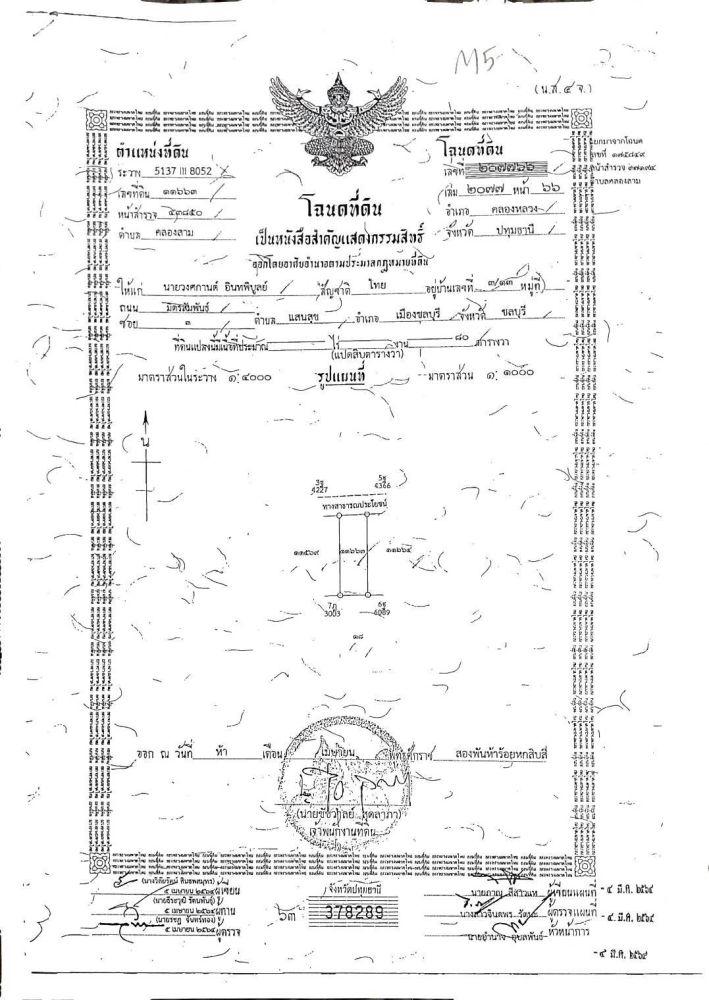 M5
(น.ส.๔ จ.)
ตำแหน่งที่ดิน
ระวาง 5137 III 8052
เลขที่ดิน ๑๑๖๖๓
หน้าสำรวจ ๔๓๘๕๐
ตำบล คลองสาม
โฉนดที่ดิน
เลขที่ ๒๐๗๗๖๖
เล่ม ๒๐๗๗ หน้า ๖๖
อำเภอ คลองหลวง
จังหวัด ปทุมธานี
แยกมาจากโฉนด
เลขที่ ๑๗๕๘๔๙
หน้าสำรวจ
ตำบลคลองสาม
โฉนดที่ดิน
เป็นหนังสือสำคัญแสดงกรรมสิทธิ์
ออกโดยอาศัยอำนาจตามประมวลกฎหมายที่ดิน
ให้แก่ นายวงศกานต์ อินทพิบูลย์ สัญชาติ ไทย อยู่บ้านเลขที่ ๓/๑๓ หมู่ที่
ถนน มิตรสัมพันธ์
ซอย ๓ ตำบล แสนสุข อำเภอ เมืองชลบุรี จังหวัด ชลบุรี
ที่ดินแปลงนี้มีเนื้อที่ประมาณ ไร่ งาน ๘๐ ตารางวา
(แปดสิบตารางวา)
มาตราส่วนในระวาง ๑:๔๐๐๐ รูปแผนที่ มาตราส่วน ๑:๑๐๐๐
น
3ฐ 5ฐ
4227 4366
ทางสาธารณประโยชน์
๑๑๕๖๙ ๑๑๖๖๓ ๑๑๖๖๔
7ภ 6ฐ
3003 4089
๑๘
ออก ณ วันที่ ห้า เดือน เมษายน พุทธศักราช สองพันห้าร้อยหกสิบสี่
เจ้าพนักงานที่ดิน
๕ เมษายน ๒๕๖๔ ผู้เขียน
๕ เมษายน ๒๕๖๔ ผู้ทาน
๕ เมษายน ๒๕๖๔ ผู้ตรวจ
จังหวัดปทุมธานี
๖๓ 378289
ผู้เขียนแผนที่ - ๔ มี.ค. ๒๕๖๔
ผู้ตรวจแผนที่ - ๔ มี.ค. ๒๕๖๔
หัวหน้าการ
- ๔ มี.ค. ๒๕๖๔